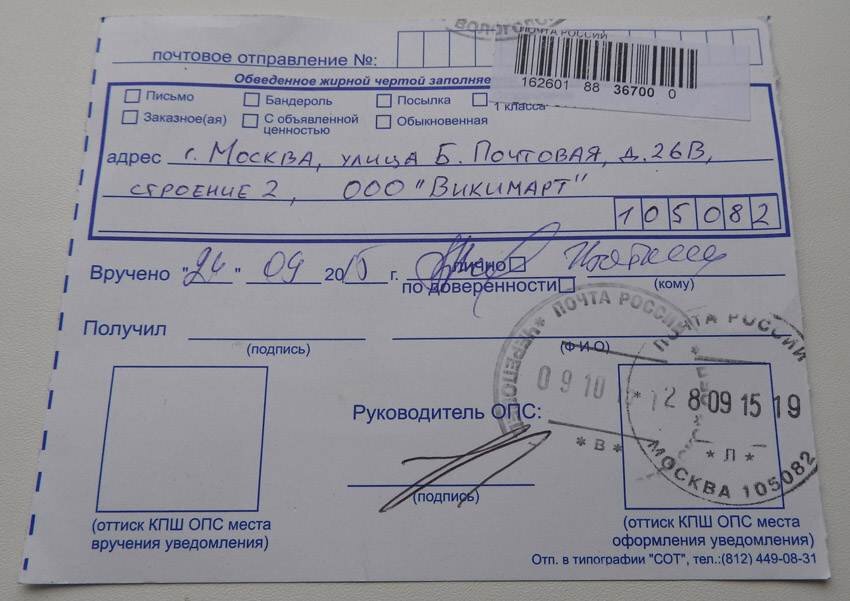 ВОЛОГОВО
ПОЧТА РОССИИ
почтовое отправление №:
Обведенное жирной чертой заполняе
162601 88 36700 0
Письмо
Бандероль
Посылка
1 класса
Заказное(ая)
С объявленной ценностью
Обыкновенная
адрес г. Москва, улица Б. Почтовая, д. 26В,
строение 2, ООО "Викимарт"
105082
Вручено "24" 09 2015 г. лично
по доверенности
(кому)
Получил
(подпись)
(Ф И О)
Руководитель ОПС:
(подпись)
ПОЧТА РОССИИ * ЧЕРЕПОВЕЦ
09 10
* В *
ПОЧТА РОССИИ
28 09 15 19
* Л *
МОСКВА 105082
(оттиск КПШ ОПС места
вручения уведомления)
(оттиск КПШ ОПС места
оформления уведомления)
Отп. в типографии "СОТ", тел.:(812) 449-08-31